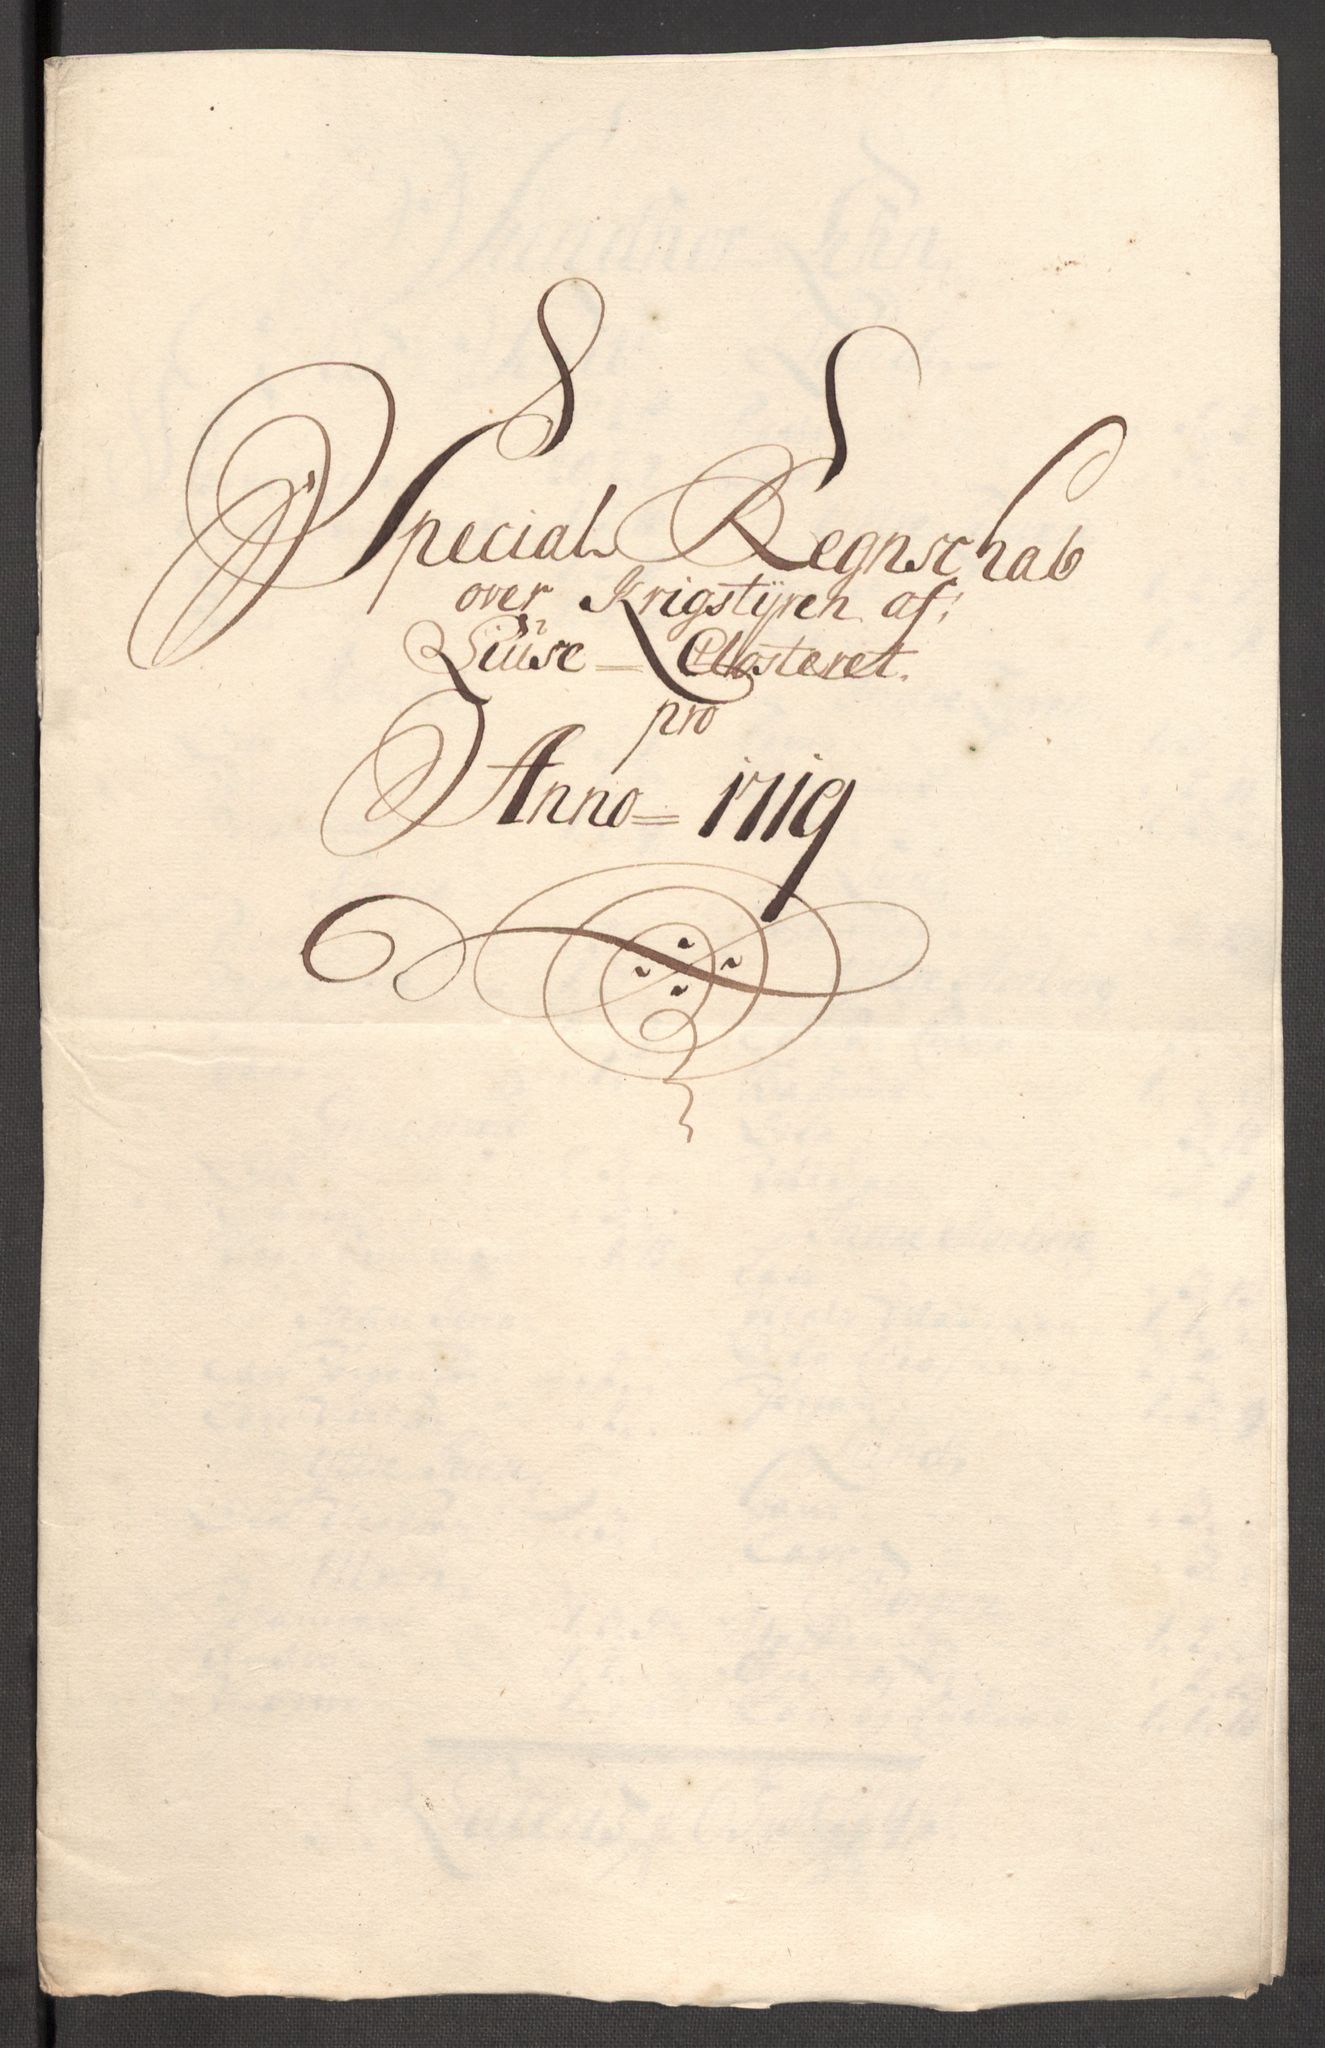 Special Regnschab
over Krigstÿren af
Liuse = Closteret.
pro
Anno = 1719